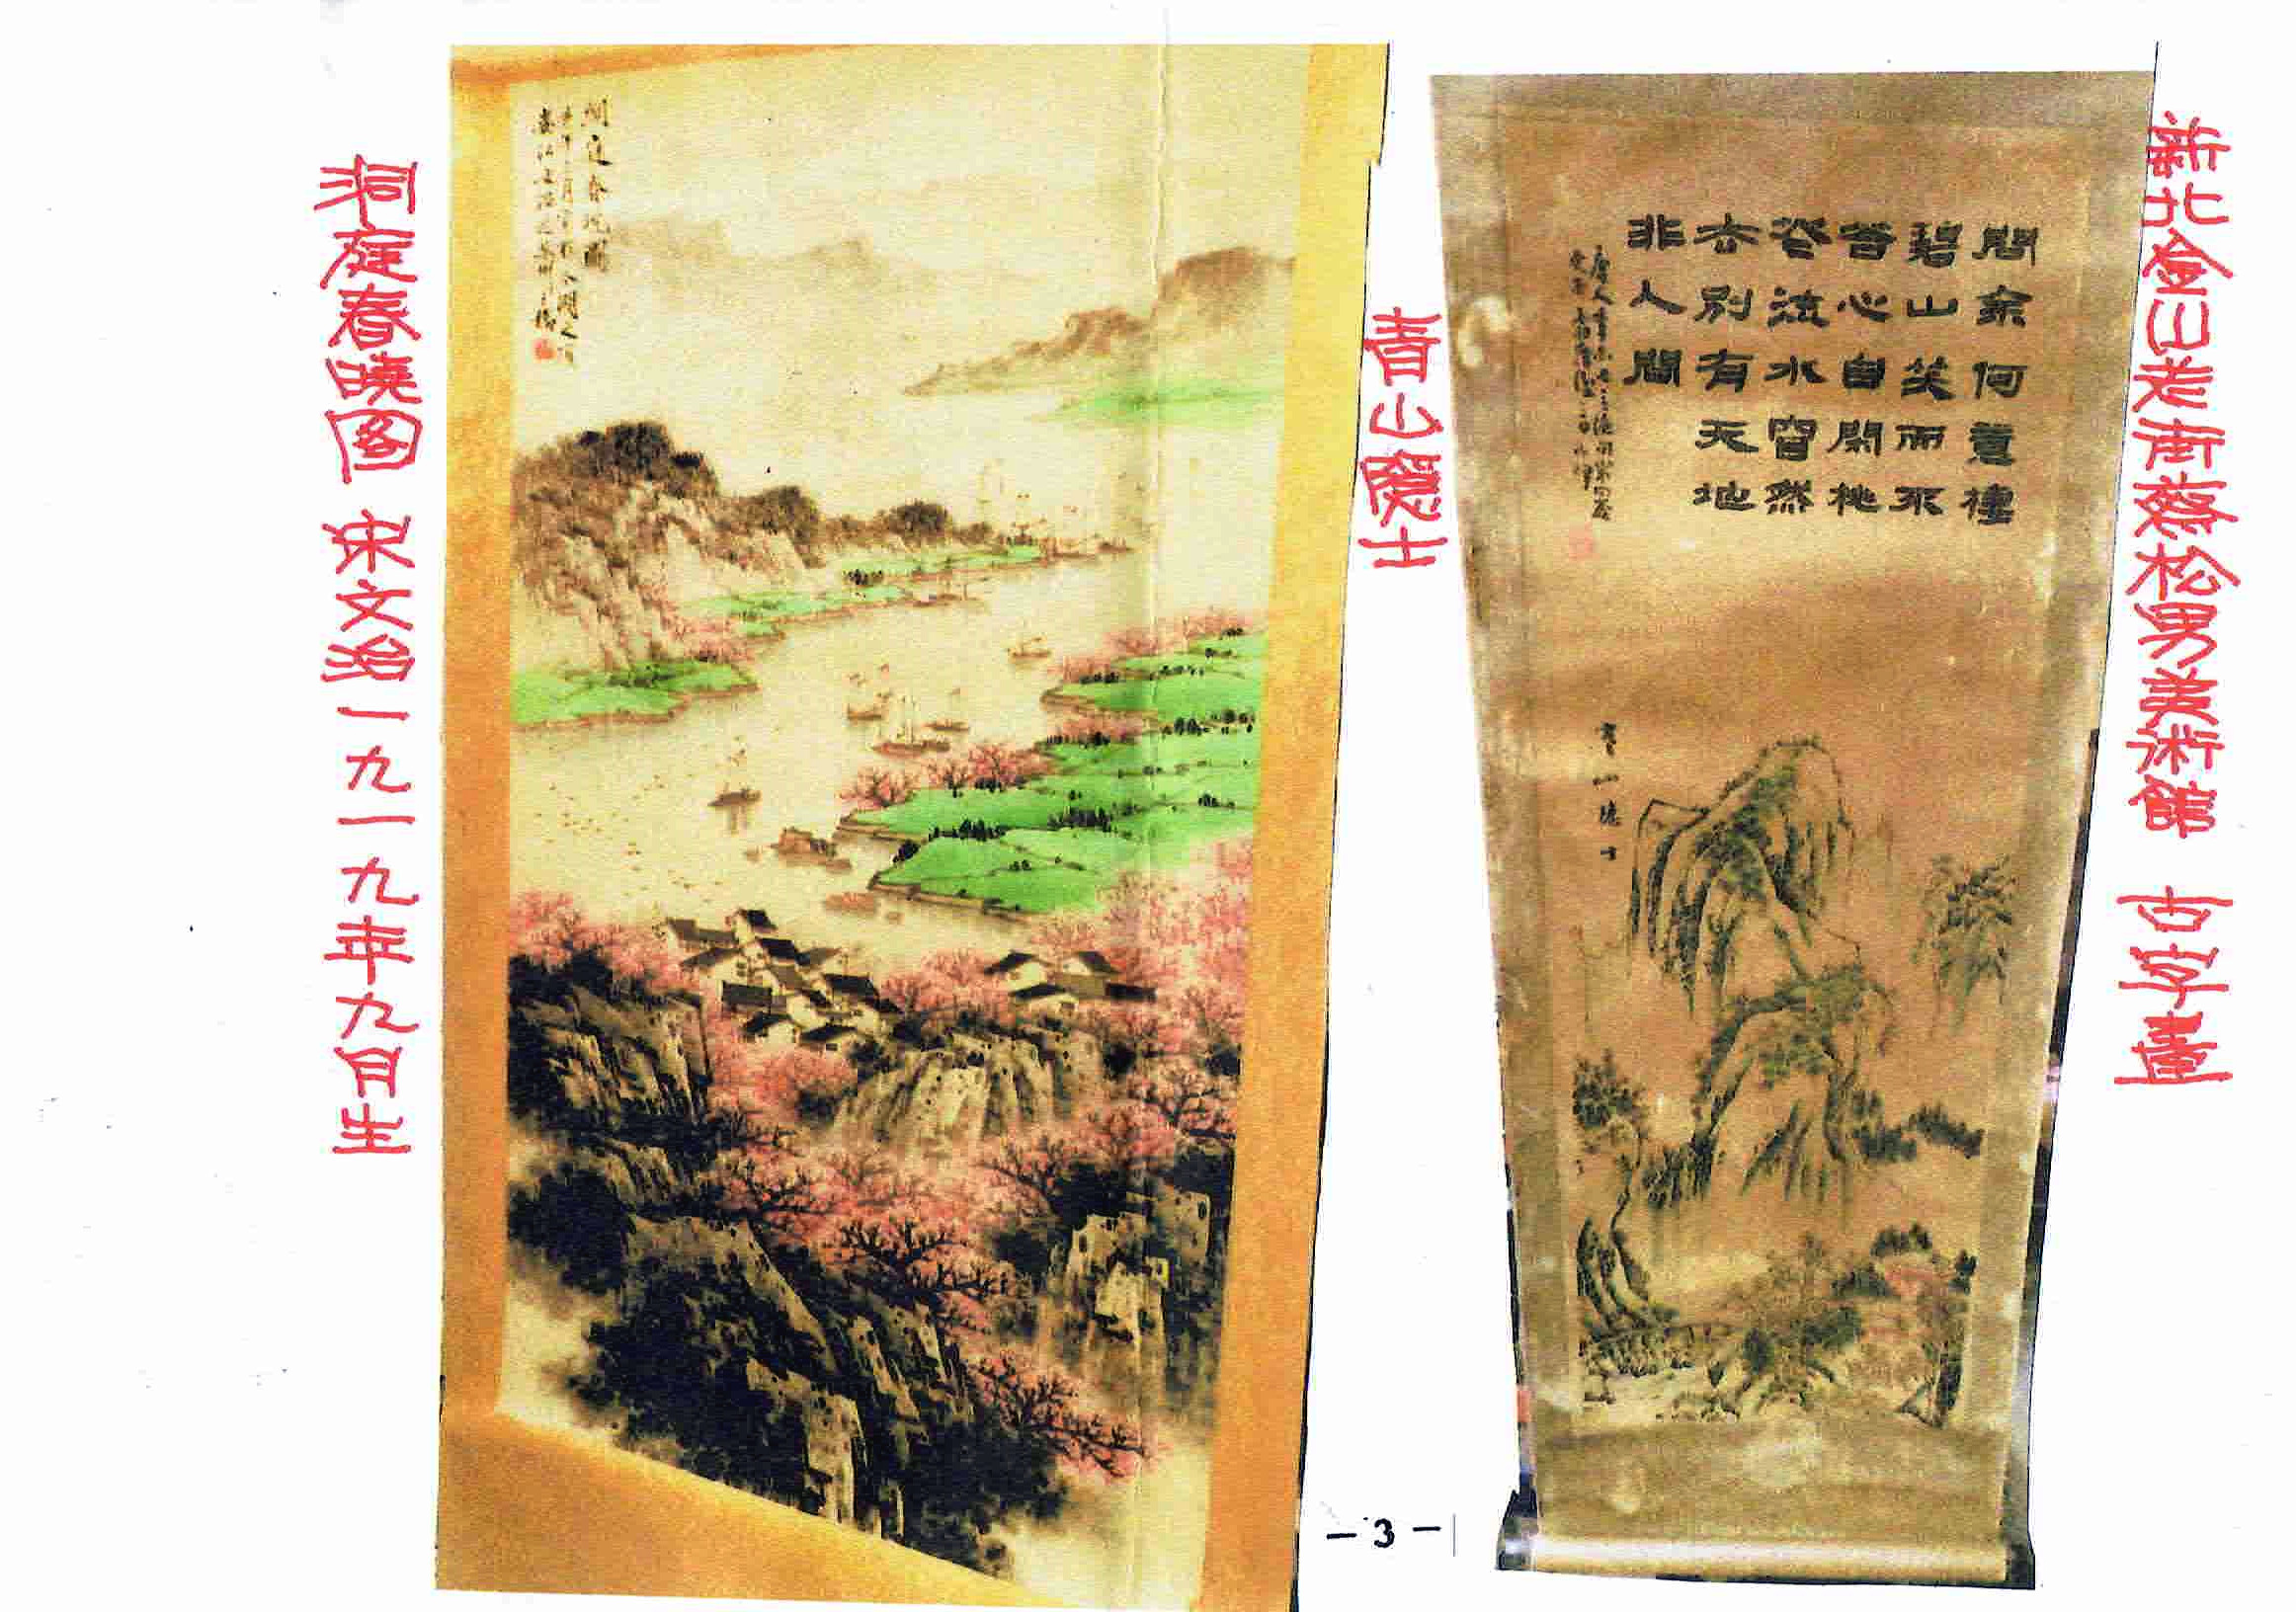 新北金山老街蔡松男美術館 古字畫
問余何意棲
碧山笑而不
答心自閑桃
花流水窅然
去別有天地
非人間
青山隱士
青山隱士
洞庭春曉圖
洞庭春曉图 宋文治一九一九年九月生
-3-